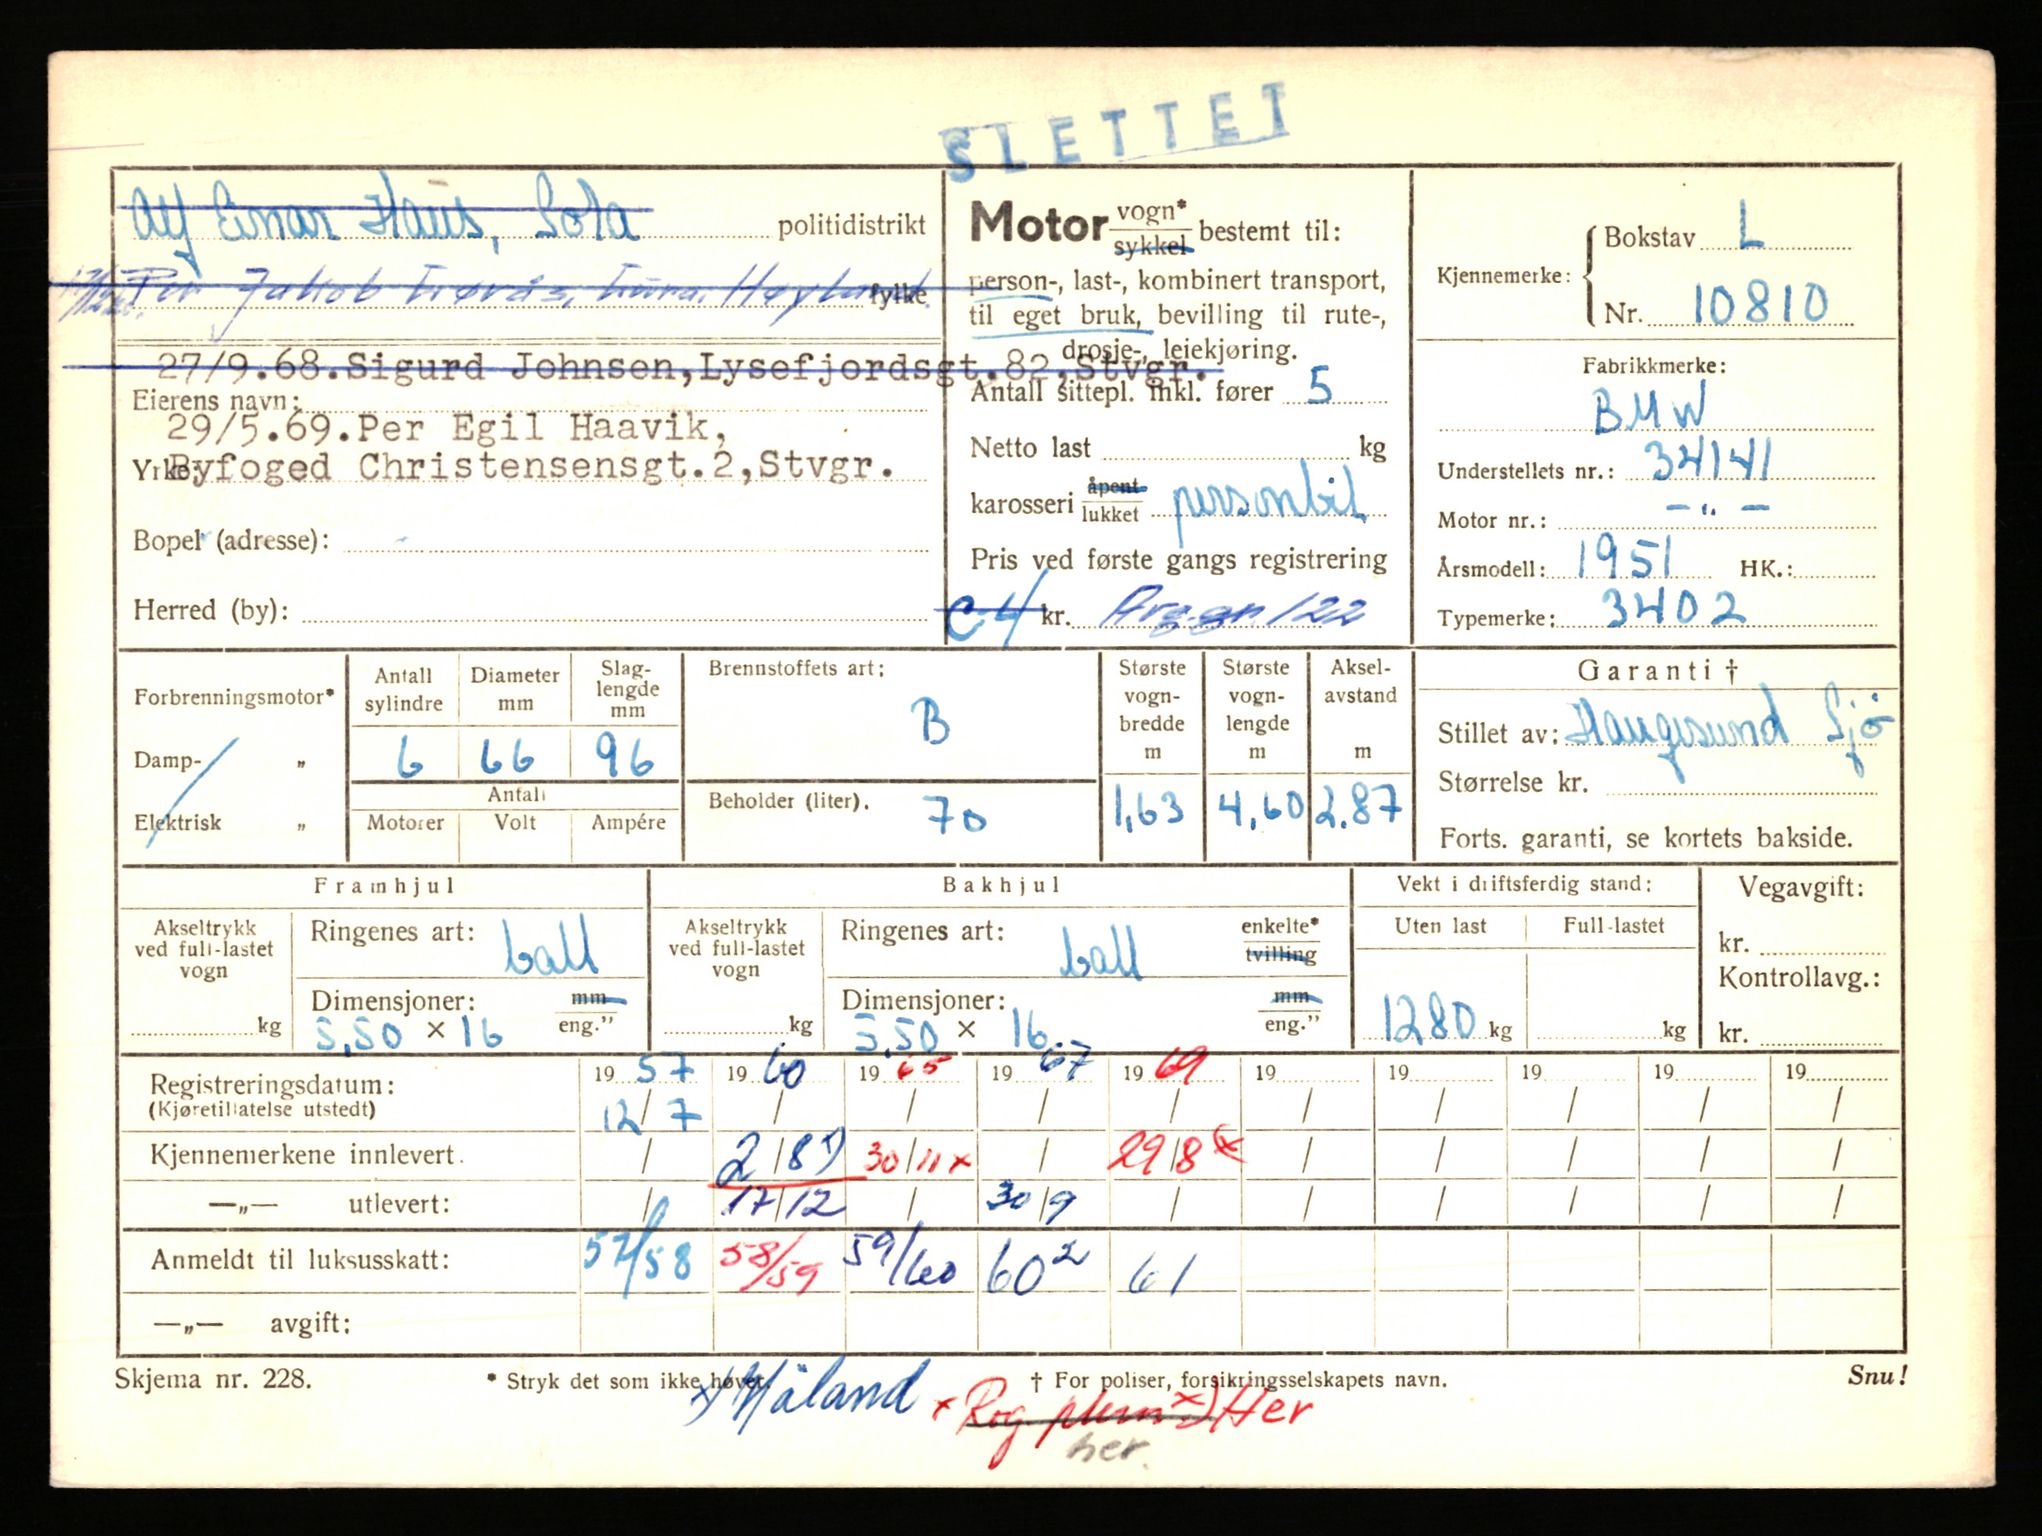 SLETTET
Alf Einar Haus, Sola politidistrikt
Per Jakob fylke
27/9.68.Sigurd Johnsen,Lysefjordsgt.82,Stvgr.
Eierens navn:
29/5.69.Per Egil Haavik,
Yrke: Byfoged Christensensgt.2,Stvgr.
Bopel (adresse):
Herred (by):
Motor vogn* sykkel bestemt til:
person-, last-, kombinert transport,
til eget bruk, bevilling til rute-,
drosje-, leiekjøring.
Antall sittepl. inkl. fører 5
Netto last kg
karosseri åpent lukket personbil
Pris ved første gangs registrering
C4 kr. Avg.gr. 122
Kjennemerke: Bokstav L
Nr. 10810
Fabrikkmerke:
BMW
Understellets nr.: 34141
Motor nr.: — " —
Årsmodell: 1951 HK.:
Typemerke: 3402
Forbrenningsmotor*
Damp- "
Elektrisk "
Antall sylindre
Diameter mm
Slag-lengde mm
6 66 96
Antall
Motorer Volt Ampére
Brennstoffets art:
B
Beholder (liter).
70
Største vogn-bredde m
Største vogn-lengde m
Aksel-avstand m
1,63 4,60 2.87
Garanti †
Stillet av: Haugesund Sjø
Størrelse kr.
Forts. garanti, se kortets bakside.
Framhjul
Akseltrykk ved full-lastet vogn
kg
Ringenes art: ball
Dimensjoner: mm
5,50 × 16 eng."
Bakhjul
Akseltrykk ved full-lastet vogn
kg
Ringenes art: ball enkelte* tvilling
Dimensjoner: mm
5,50 × 16 eng."
Vekt i driftsferdig stand:
Uten last Full-lastet
1280 kg kg
Vegavgift:
kr.
Kontrollavg.:
kr.
Registreringsdatum: 19 57 19 60 19 65 19 67 19 69 19 19 19 19 19
(Kjøretillatelse utstedt) 12/7 / / / / / / / / /
Kjennemerkene innlevert. / 2/8 x) 30/11 x / 29/8 x / / / / /
—„— utlevert: / 17/12 / 30/9 / / / / / /
Anmeldt til luksusskatt: 57/58 58/59 59/60 60² 61
—„— avgift:
Skjema nr. 228. * Stryk det som ikke høver. † For poliser, forsikringsselskapets navn. Snu!
x) Håland x Rog x) Her
her.